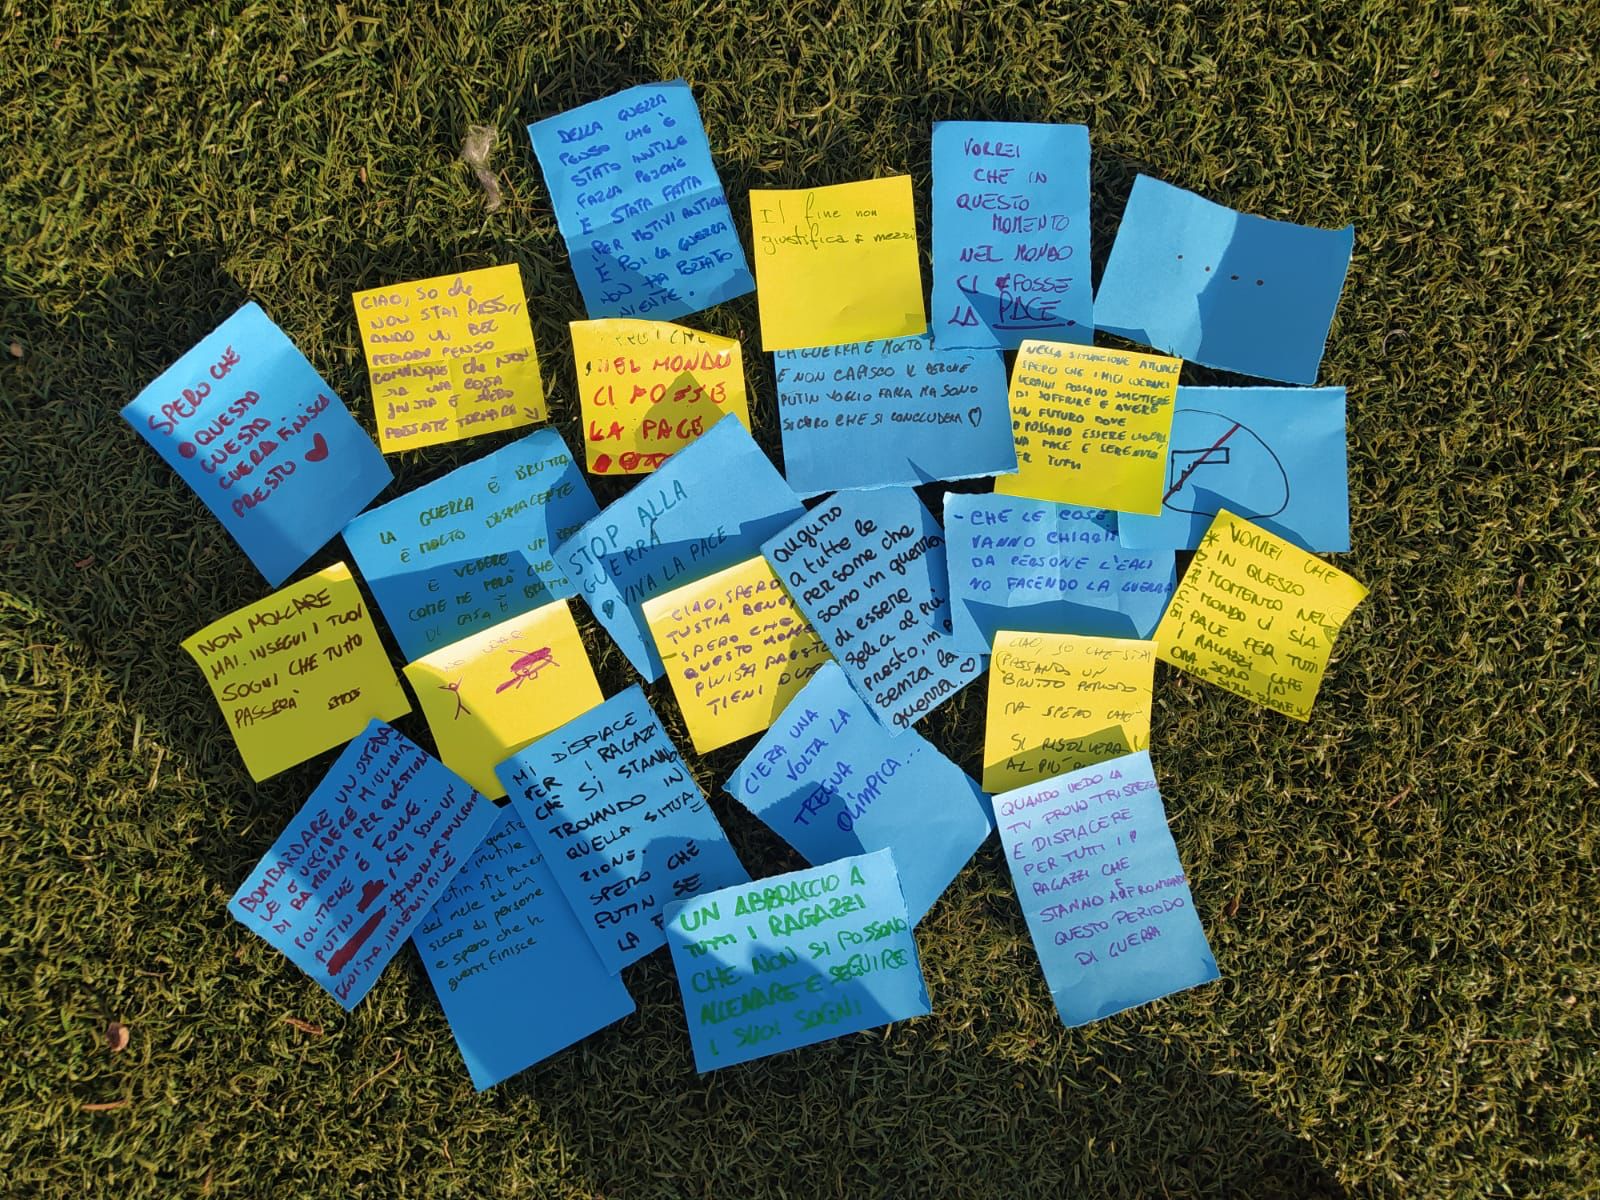 DELLA GUERRA
PENSO CHE È
STATO INUTILE
FARLA PERCHÉ
È STATA FATTA
PER MOTIVI
E POI LA GUERRA
NON HA PORTATO
NIENTE.
Il fine non
giustifica i mezzi
VORREI
CHE IN
QUESTO
MOMENTO
NEL MONDO
CI FOSSE
LA PACE.
....
CIAO, SO che
NON STAI PASS
ANDO UN BEL
PERIODO PENSO
COMUNQUE che NON
SIA UNA COSA
GIUSTA E SPERO
POSSATE TORNARE
SPERO CHE
QUESTO
QUESTA
GUERRA FINISCA
PRESTO
NEL MONDO
CI POSSE
LA PACE
LA GUERRA È MOLTO
E NON CAPISCO IL PERCHÉ
PUTIN VOGLIO FARLA MA SONO
SICURO CHE SI CONCLUDERÀ
NELLA SITUAZIONE ATTUALE
SPERO CHE I MIEI
UCRAINI POSSANO SMETTERE
DI SOFFRIRE E AVERE
UN FUTURO DOVE
POSSANO ESSERE LIBERI,
UNA PACE E SERENITÀ
PER TUTTI
LA GUERRA È BRUTTA
È MOLTO DISPIACENTE
E VEDERE UN
COME ME PERÒ CHE
DI CASA È BRUTTO
STOP ALLA
GUERRA
VIVA LA PACE
auguro
a tutte le
persone che
sono in guerra
di essere
felice al più
presto, in
senza la
guerra.
- CHE LE COSE
VANNO CHIARIT
DA PERSONE LEALI
NO FACENDO LA GUERRA
VORREI CHE
IN QUESTO
MOMENTO NEL
MONDO CI SIA
PACE PER TUTTI
I RAGAZZI CHE
ORA SONO IN
UNA SITUAZIONE
NON MOLLARE
MAI. INSEGUI I TUOI
SOGNI CHE TUTTO
PASSERÀ
NO WAR
CIAO, SPERO
TU STIA BENE,
SPERO CHE
QUESTO
FINISA PRESTO
TIENI DURO
CIAO, SO CHE STAI
PASSANDO UN
BRUTTO PERIODO
MA SPERO CHE
SI RISOLVERÀ
AL PIÙ
BOMBARDARE UN OSPEDA
LE O UCCIDERE MIGLIAIA
DI BAMBINI PER QUESTIONI
POLITICHE È FOLLE.
PUTIN, SEI SOLO UN
EGOISTA, INSENSIBILE
inutile
Putin
di persone
e spero che la
guerra finisce
MI DISPIACE
PER I RAGAZZI
CHE SI STANNO
TROVANDO IN
QUELLA SITUA=
ZIONE
SPERO CHE
PUTIN SE
LA
C'ERA UNA
VOLTA LA
TREGUA
OLIMPICA...
UN ABBRACCIO A
TUTTI I RAGAZZI
CHE NON SI POSSONO
ALLENARE E SEGUIRE
I SUOI SOGNI
QUANDO VEDO LA
TV PROVO TRISTEZZA
E DISPIACERE
PER TUTTI I
RAGAZZI CHE
STANNO AFFRONTANDO
QUESTO PERIODO
DI GUERRA